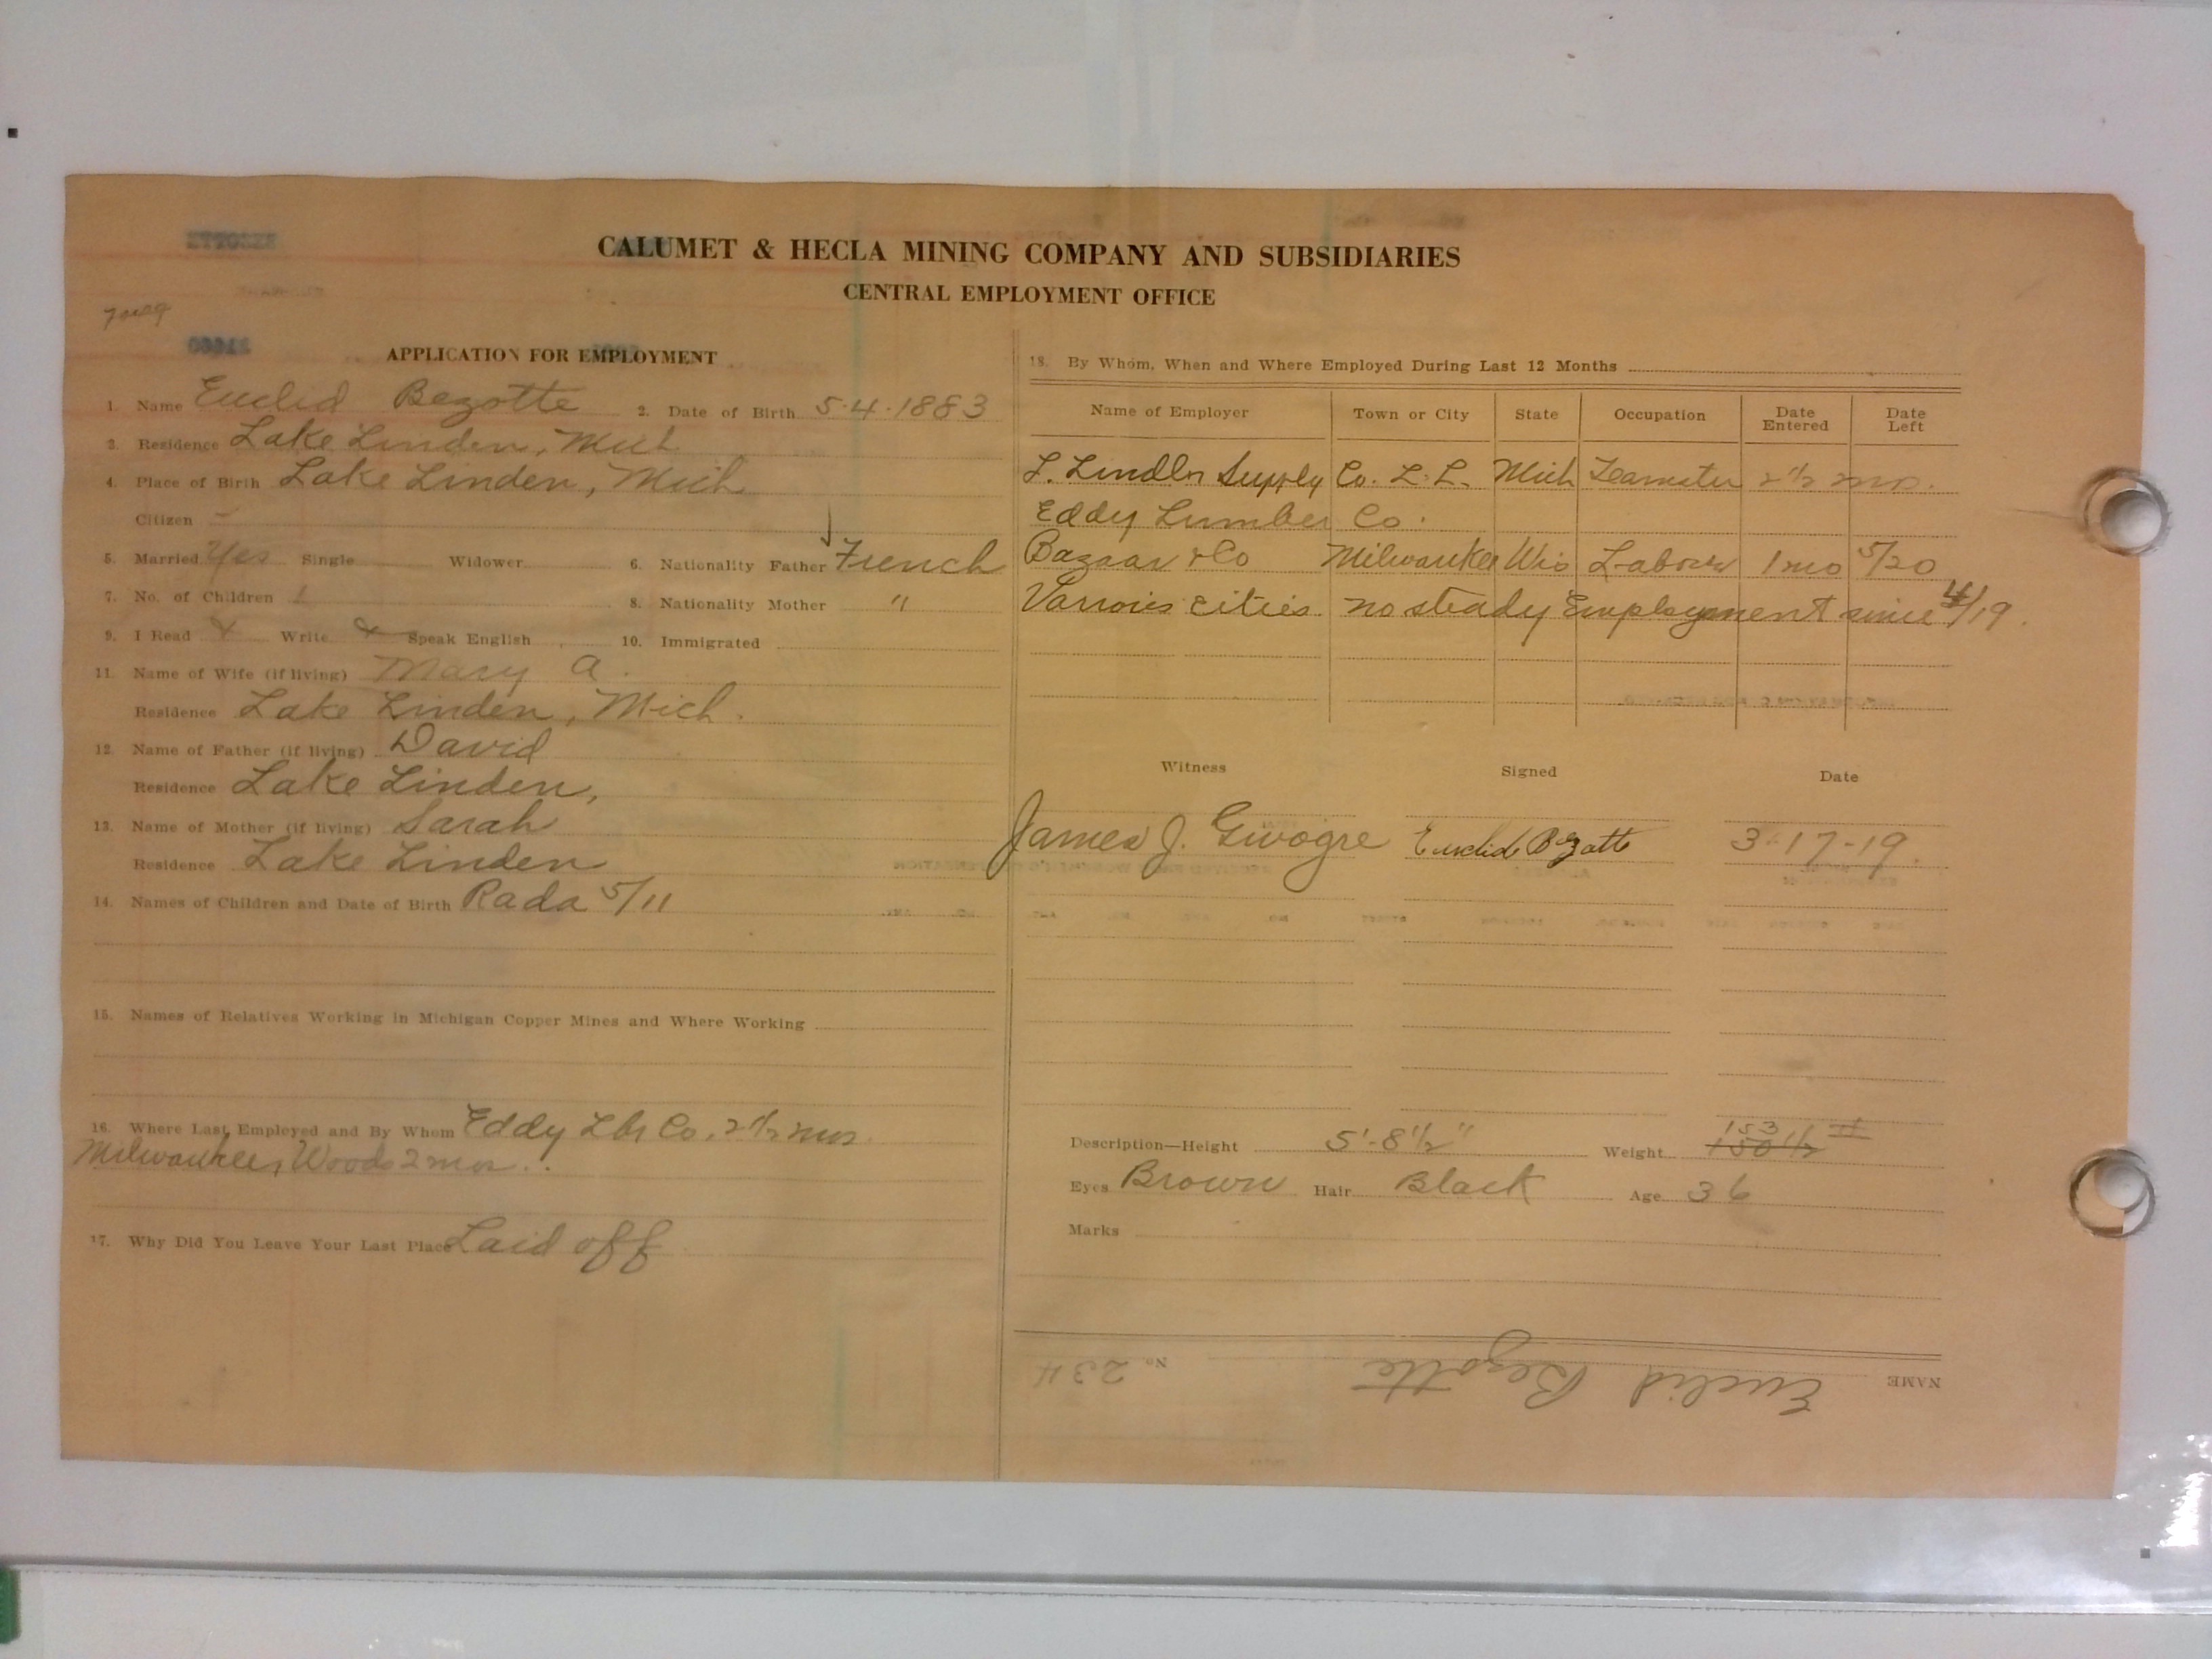 CALUMET & HECLA MINING COMPANY AND SUBSIDIARIES
CENTRAL EMPLOYMENT OFFICE
APPLICATION FOR EMPLOYMENT
1. Name Euclid Bezotte 2. Date of Birth 5-4-1883
3. Residence Lake Linden, Mich
4. Place of Birth Lake Linden, Mich
Citizen
5. Married Yes Single Widower 6. Nationality Father French
7. No. of Children 1 8. Nationality Mother "
9. I Read Write Speak English 10. Immigrated
11. Name of Wife (if living) Mary A.
Residence Lake Linden, Mich.
12. Name of Father (if living) David
Residence Lake Linden,
13. Name of Mother (if living) Sarah
Residence Lake Linden
14. Names of Children and Date of Birth Rada 5/11
15. Names of Relatives Working in Michigan Copper Mines and Where Working
16. Where Last Employed and By Whom Eddy Lbr Co. 2 1/2 mos.
Milwaukee, Woods 2 mos..
17. Why Did You Leave Your Last Place Laid off
18. By Whom, When and Where Employed During Last 12 Months
Name of Employer Town or City State Occupation Date Entered Date Left
Supply Co. L.L. Mich Teamster 2 1/2 mo.
Eddy Lumber Co.
Bazaar & Co Milwaukee Wis Labor 1 mo 5/20
Various cities no steady Employment since 4/19.
Witness Signed Date
James J. Euclid Bezotte 3-17-19.
Description—Height 5'-8 1/2" Weight 153
Eyes Brown Hair Black Age 36
Marks
NAME Euclid Bezotte No. 234